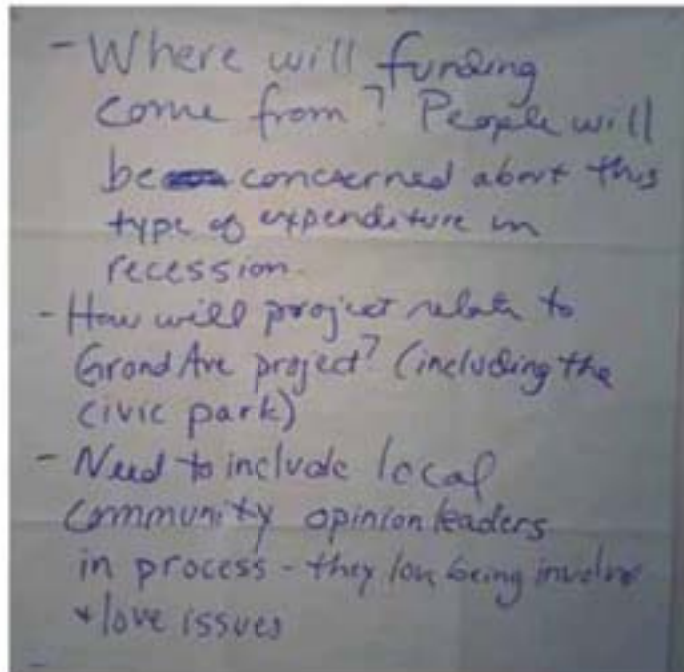 - Where will funding
come from? People will
be concerned about this
type of expenditure in
recession.
- How will project relate to
Grand Ave project? (including the
civic park)
- Need to include local
community opinion leaders
in process - they love being involve
+ love issues
-